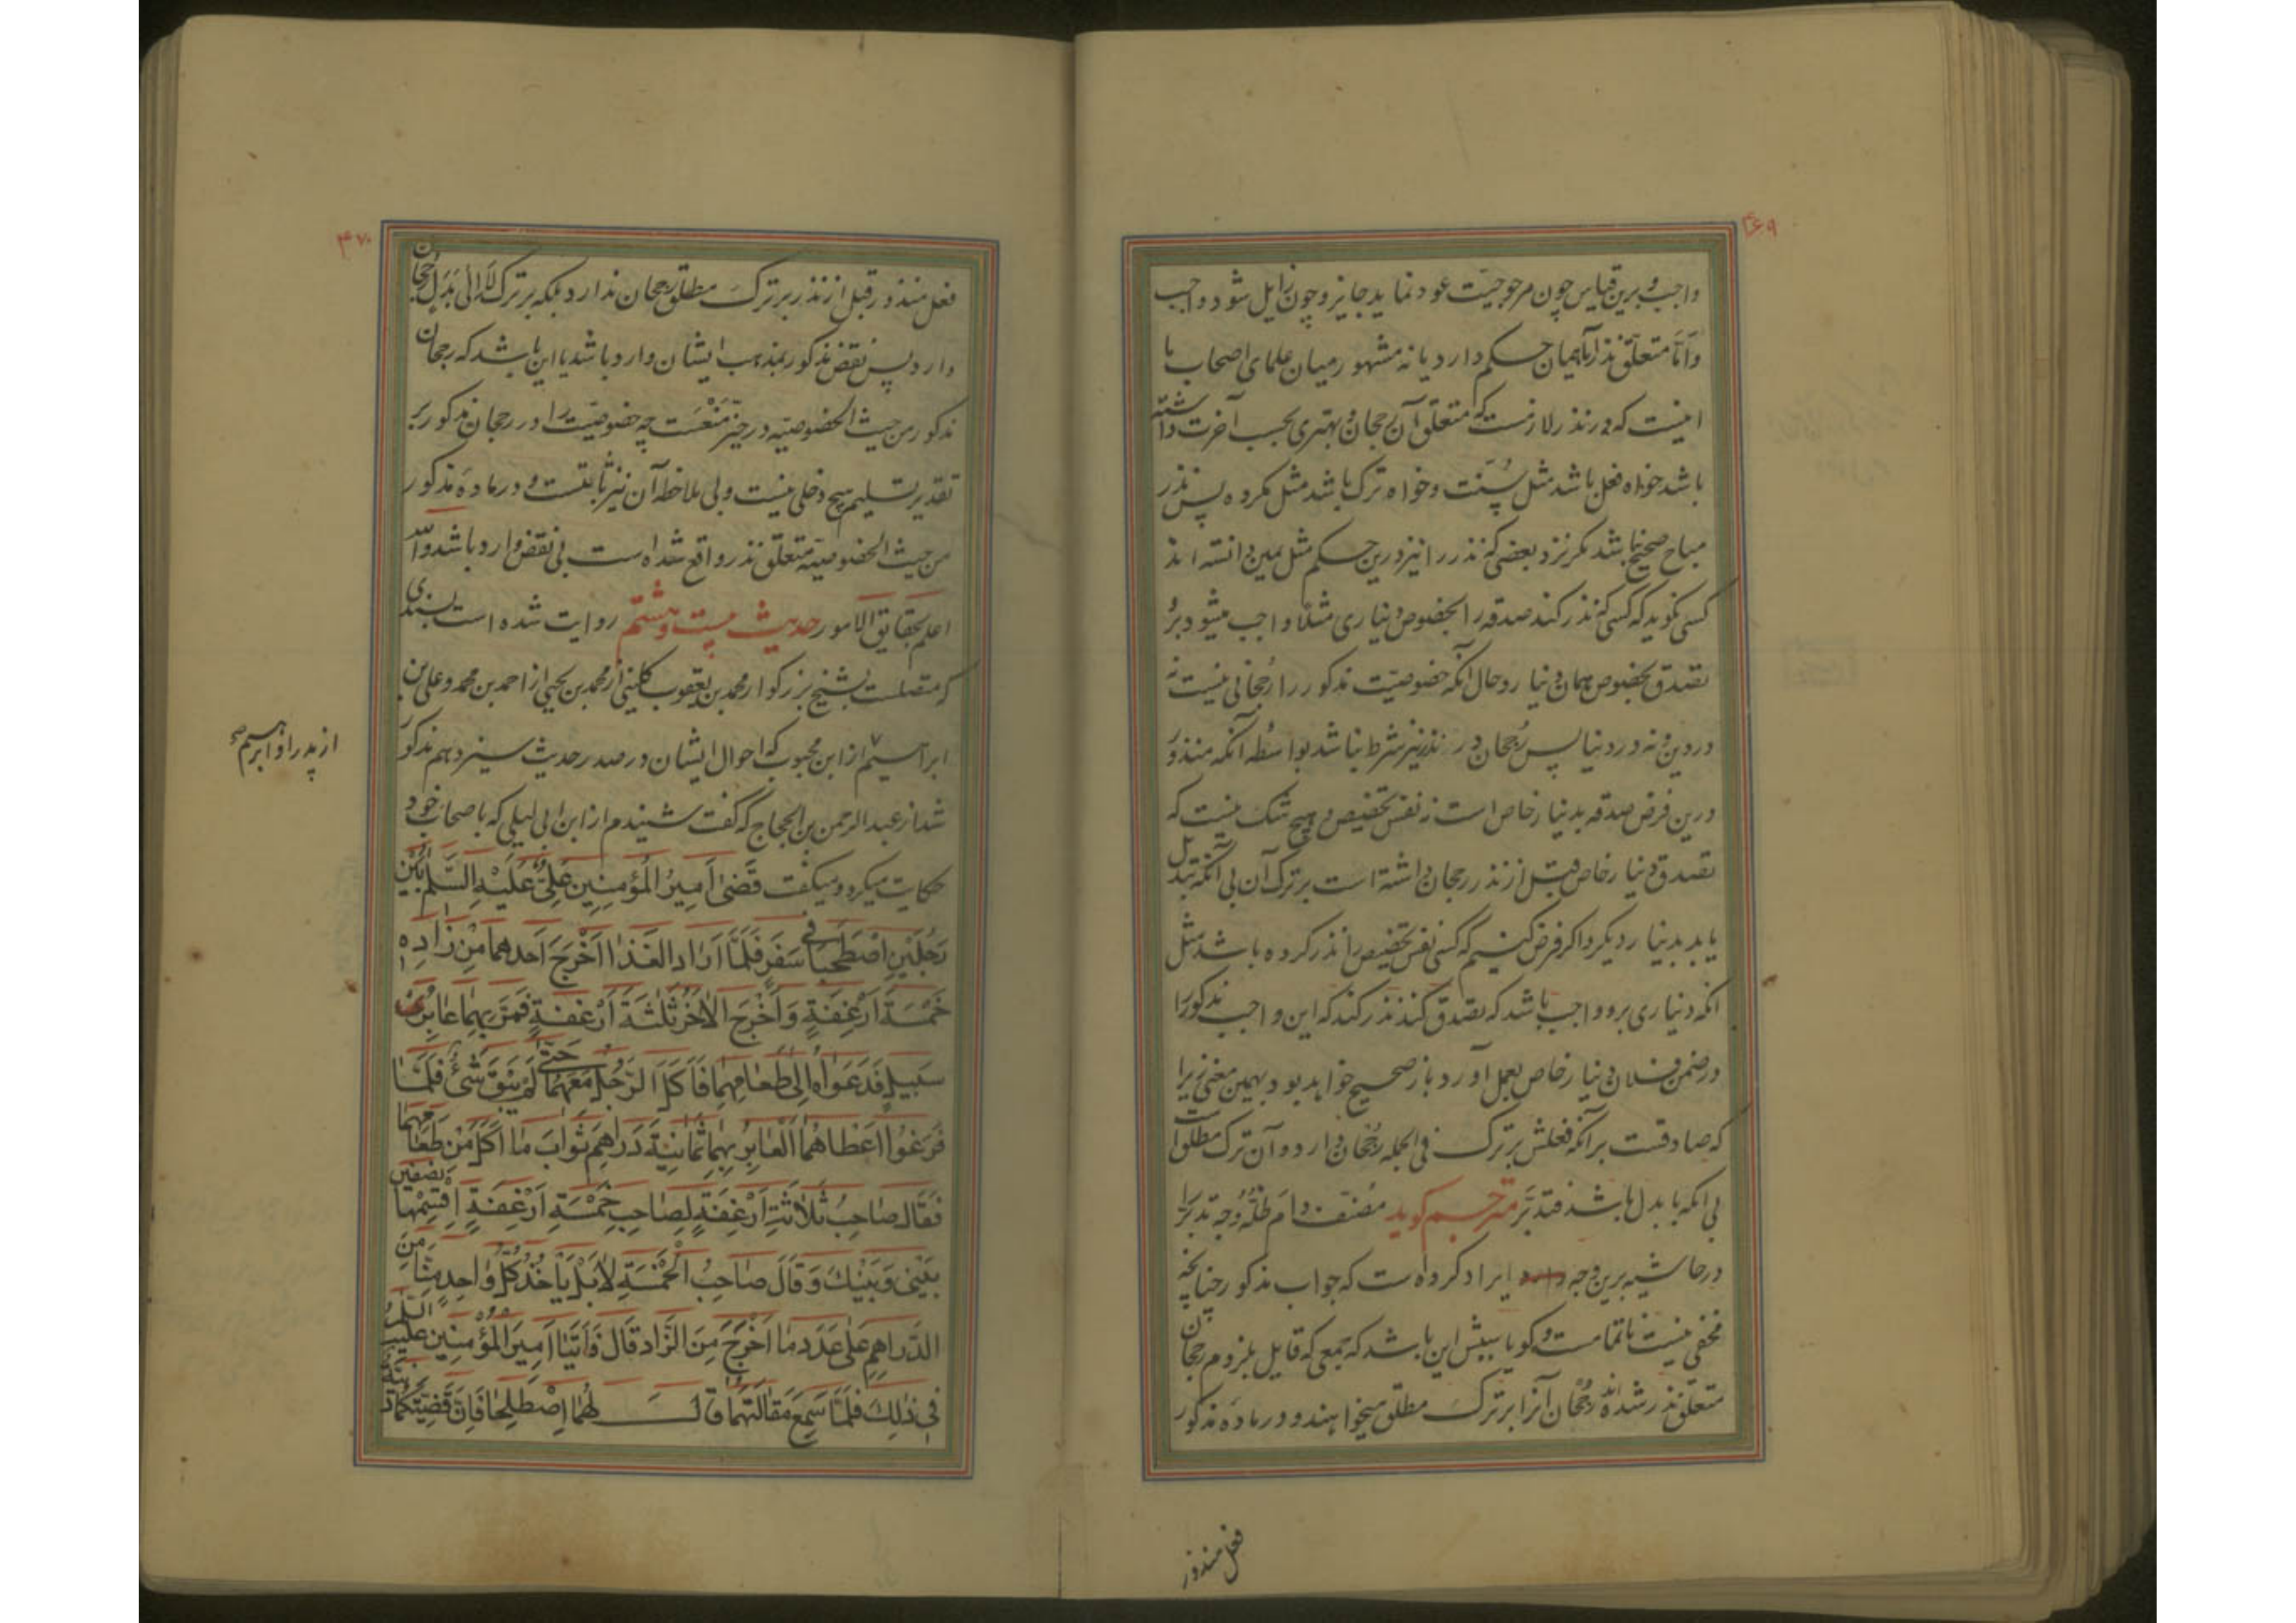 ۴۶۹
واجب و برین قیاس چون مرجوحیت عود نماید جایز و چون زایل شود واجب
و امّا متعلّق نذر آیا همان حکم دارد یا نه مشهور میان علمای اصحاب ما
اینست که در نذر لازمست که متعلّق آن رجحان و بهتری بحسب آخرت داشته
باشد خواه فعل باشد مثل سنّت و خواه ترک باشد مثل مکروه پس نذر
مباح صحیح نباشد مکر نزد بعضی که نذر را نیز درین حکم مثل یمین دانسته اند
کسی نکوید که کسی که نذر کند صدقه را بخصوص دیناری مثلا واجب میشود برو
تصدق بخصوص همان دینار و حال آنکه خصوصیّت مذکور را رجحانی نیست نه
در دین و نه در دنیا پس رجحان در نذر نیز شرط نباشد بواسطه آنکه منذور
درین فرض صدقه بدینار خاص است نه نفس تخصیص و هیچ شک نیست که
تصدق دینار خاص قبل از نذر رجحان داشته است بر ترک آن بی آنکه تبدیل
یابد بدینار دیکر و اکر فرض کنیم که کسی نفس تخصیص را نذر کرده باشد مثل
انکه دیناری برو واجب باشد که تصدق کند نذر کند که این واجب مذکور را
در ضمن فلان دینار خاص بعمل آورد باز صحیح خواهد بود بهمین معنی زیرا
که صادقست بر آنکه فعلش بر ترک فی الجمله رجحان دارد و آن ترک مطلق است
بی انکه با بدل باشد فتدبّر مترجم کوید مصنف دام ظلّه وجه تدبّر را
در حاشیه برین وجه ایراد کرده است که جواب مذکور چنانچه
مخفی نیست ناتمامست و کویا سببش این باشد که جمعی که قایل بلزوم رجحان
متعلّق نذر شده اند رجحان آنرا بر ترک مطلق میخواهند و در ماده مذکور
فعل منذور
۴۷۰
فعل منذور قبل از نذر بر ترک مطلق رجحان ندارد بلکه بر ترک لا الی بدل رجحان
دارد پس نقض مذکور بمذهب ایشان وارد باشد یا این باشد که رجحان
مذکور من حیث الخصوصیّه در حیّز منعست چه خصوصیّت را در رجحان مذکور بر
تقدیر تسلیم هیچ دخلی نیست و بی ملاحظه آن نیز ثابتست و در ماده مذکور
من حیث الخصوصیّه متعلّق نذر واقع شده است پس نقض وارد باشد و الله
اعلم بحقایق الامور حدیث بیست و هشتم روایت شده است بسندی
که متصلست بشیخ بزرکوار محمد بن یعقوب کلینی از محمد بن یحیی از احمد بن محمد و علی بن
ابراهیم از ابن محبوب که احوال ایشان در صدر حدیث سیزدهم مذکور
از پدر او ابراهیم صح
شد از عبد الرحمن بن الحجاج که کفت شنیدم از ابن ابی لیلی که با صحاب خود
حکایت میکرد و میکفت قَضٰی اَمیرُ المُؤمِنینَ عَلیٌّ عَلَیْهِ السَّلٰم بَیْنَ
رَجُلَیْنِ اصْطَحَبٰا فی سَفَرٍ فَلَمّٰا اَرٰادَ الغَذٰا اَخْرَجَ اَحَدُهُمٰا مِنْ زٰادِهِ
خَمْسَةَ اَرْغِفَةٍ وَ اَخْرَجَ الاٰخَرُ ثَلٰثَةَ اَرْغِفَةٍ فَمَرَّ بِهِمٰا عٰابِرُ
سَبیلٍ فَدَعَوٰاهُ اِلٰی طَعٰامِهِمٰا فَاَکَلَ الرَّجُلُ مَعَهُمٰا حَتّٰی لَمْ یَبْقَ شَیْءٌ فَلَمّٰا
فَرَغُوا اَعْطٰاهُمَا الْعٰابِرُ بِهِمٰا ثَمٰانِیَةَ دَرٰاهِمَ ثَوٰابَ مٰا اَکَلَ مِنْ طَعٰامِهِمٰا
فَقٰالَ صٰاحِبُ ثَلٰاثَةِ اَرْغِفَةٍ لِصٰاحِبِ خَمْسَةِ اَرْغِفَةٍ اِقْسِمْهٰا نِصْفَیْنِ
بَیْنی وَ بَیْنَکَ وَ قٰالَ صٰاحِبُ الْخَمْسَةِ لاٰ بَلْ یَأخُذُ کُلُّ وٰاحِدٍ مِنّٰا مِنَ
الدَّرٰاهِمِ عَلٰی عَدَدِ مٰا اَخْرَجَ مِنَ الزّٰادِ قٰالَ فَاَتَیٰا اَمیرَ المُؤْمِنینَ عَلَیْهِ السَّلٰمُ
فی ذٰلِکَ فَلَمّٰا سَمِعَ مَقٰالَتَهُمٰا قٰالَ لَهُمٰا اِصْطَلِحٰا فَاِنَّ قَضِیَّتَکُمٰا دَنِیَّةٌ